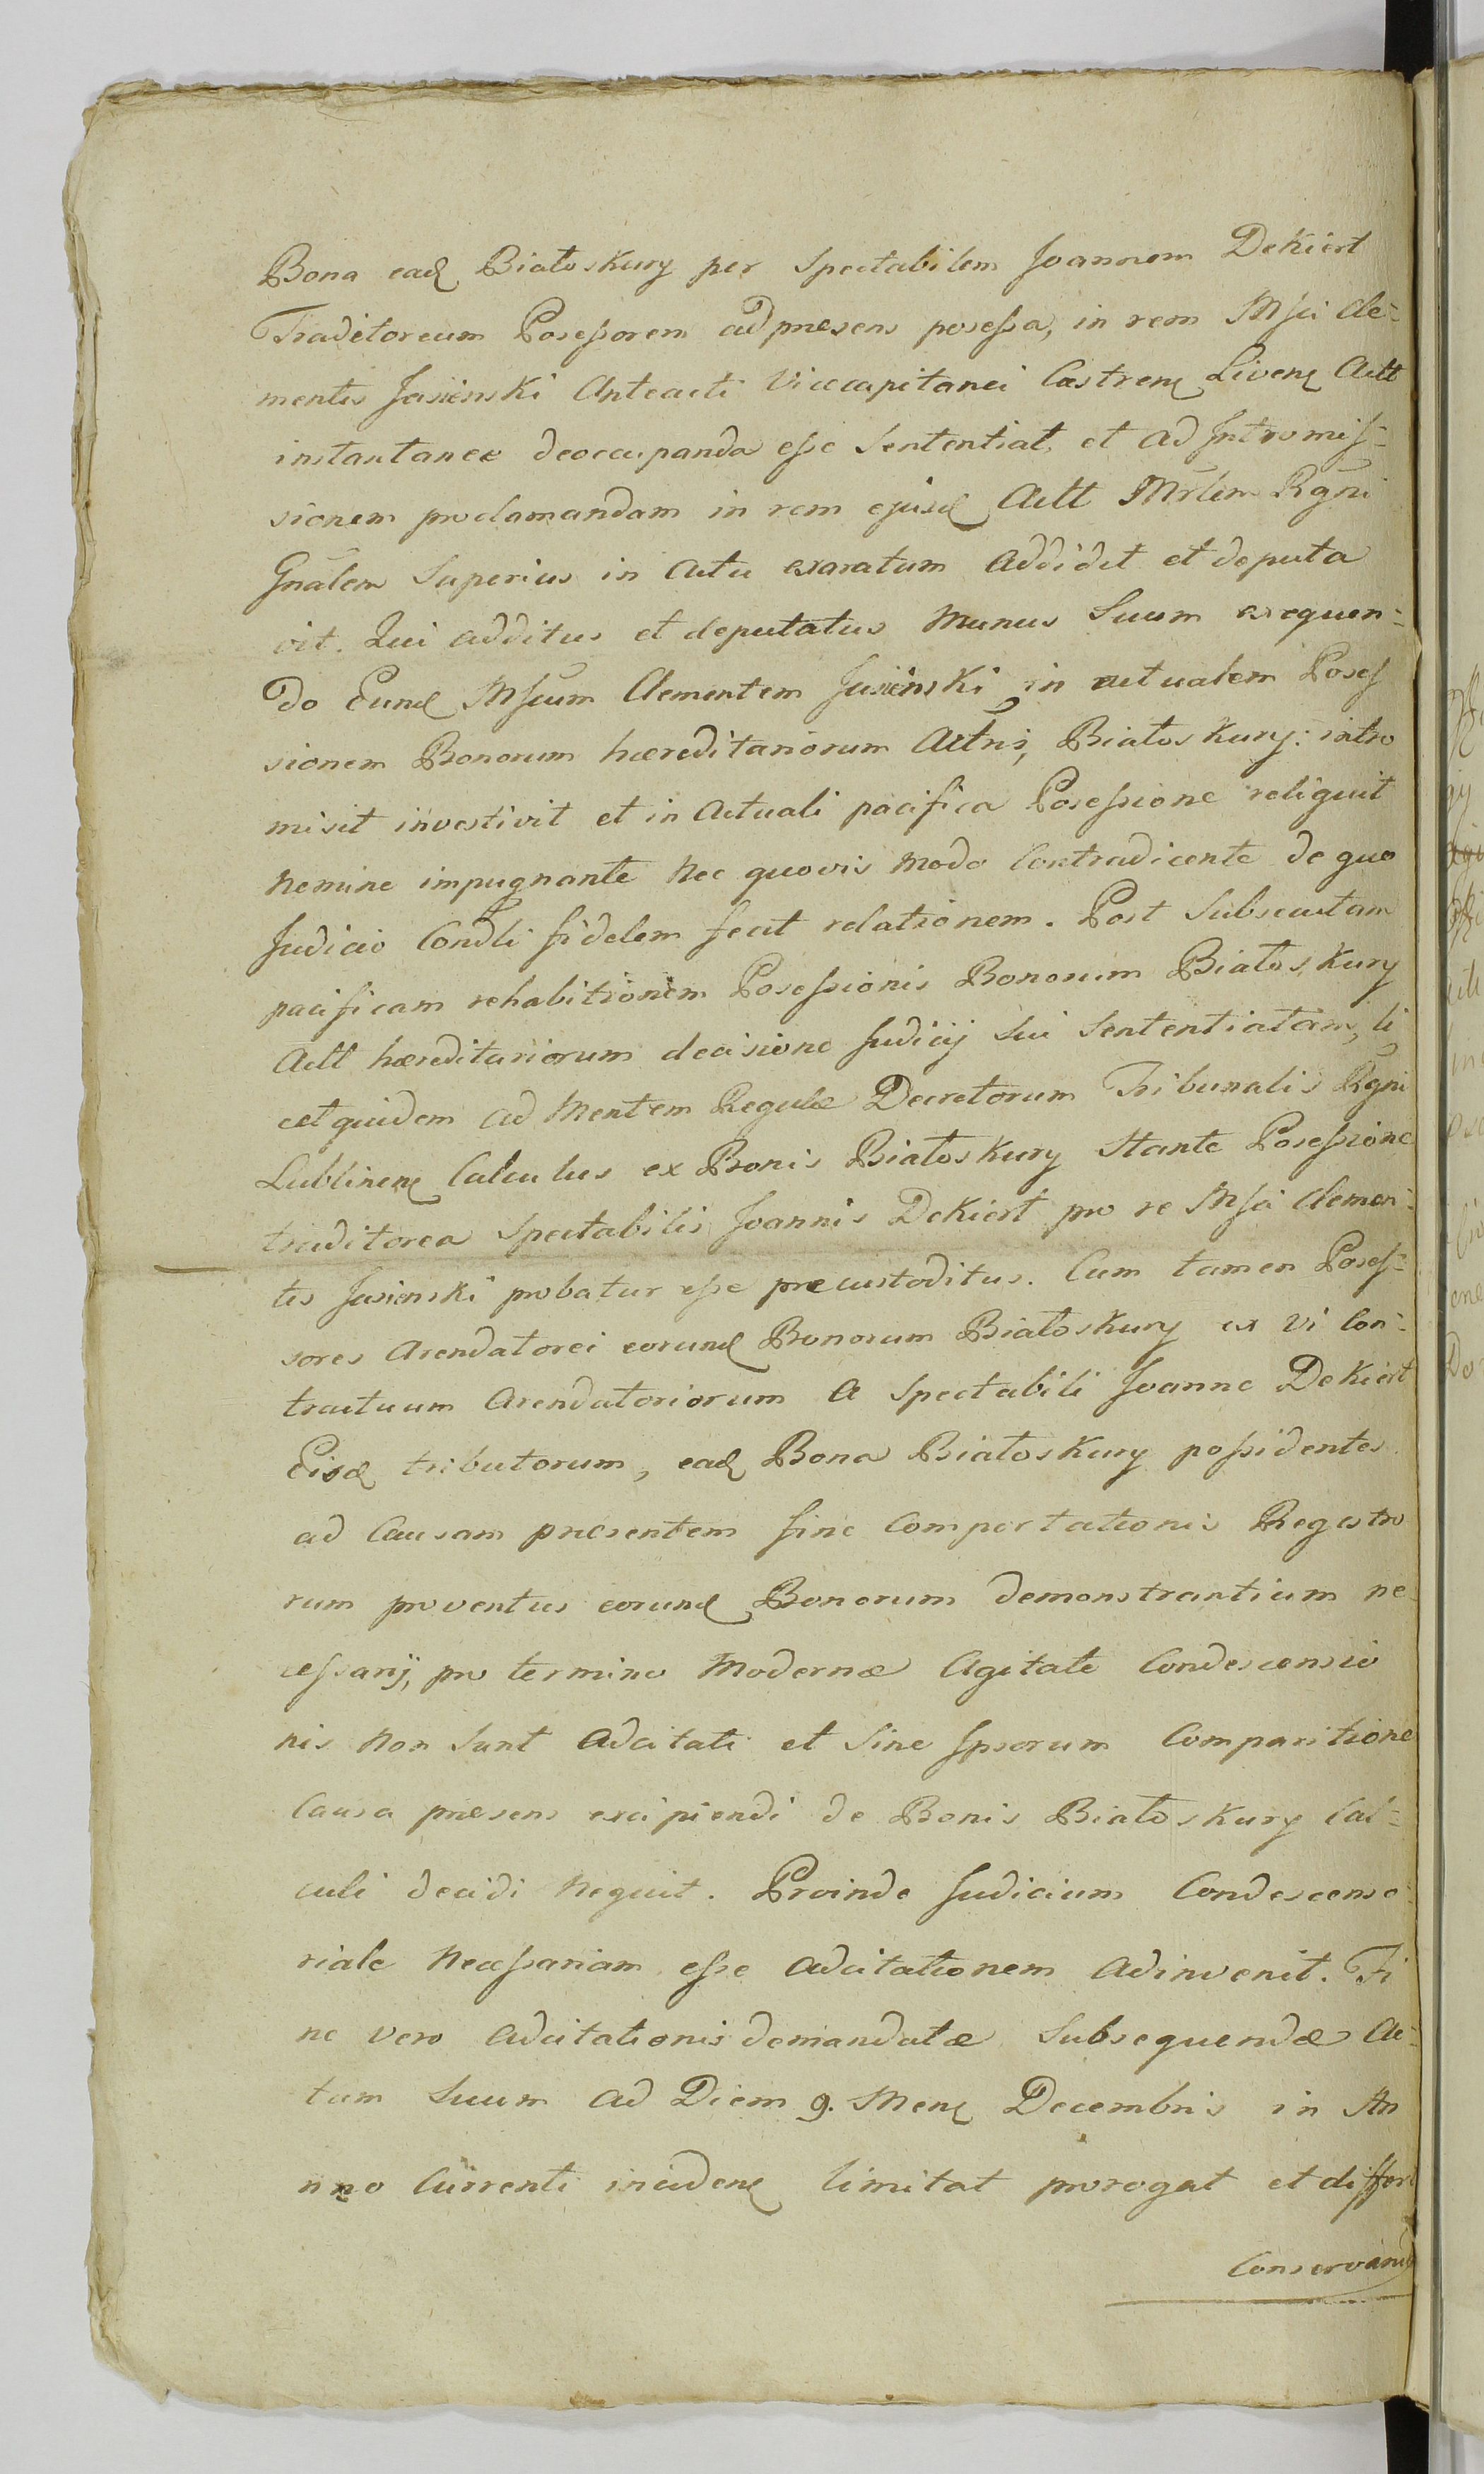 Bona ead Białoskury per Spectabilem Joannem Dekiert
Traditoreum Posessorem ad præsens posessa, in rem Msci Cle-
mentis Jasieński Anteacti Vicecapitanei Castren Liven Actt
instantanee deoccupanda esse Sententiat, et ad Intromis-
sionem proclamandam in rem ejusd Actt Mrlem Rgni
Gnalem Superius in actu exaratum addidit et deputa
vit. Qui additus et deputatus Munus Suum exequen-
do Eund Mscum Clementem Jasieński, in actualem Poses
sionem Bonorum hæreditariorum Actris, Białoskury: intro
misit investivit et in Actuali pacifica Posessione reliquit
Nemine impugnante Nec quovis Modo Contradicente de quo
Judicio Condli fidelem fecit relationem. Post Subsecutam
pacificam rehabitionem Posessionis Bonorum Białoskury
Actt hæreditariorum decisione Judicij Sui Sententiatam, li
cet quidem ad Mentem Regulæ Decretorum Tribunalis Rgni
Lublinen Calculus ex Bonis Białoskury Stante Posessione
traditorea Spectabilis Joannis Dekiert pro re Msci Clemen-
tis Jasieński probatur esse præcustoditus. Cum tamen Poses-
sores Arendatorei eorund Bonorum Białoskury ex Vi Con-
tractuum Arendatoriorum a Spectabili Joanne Dekiert
Eisd tributorum, ead Bona Białoskury possidentes
ad Causam præsentem fine Comportationis Regestro
rum proventus eorund Bonorum demonstrantium ne
cessarij, pro termino Modernæ Agitatæ Condescensio
nis Non Sunt Adcitati et Sine Ipsorum Comparitione
Causa præsens excipiendi de Bonis Białoskury Cal-
culi decidi Nequit. Proinde Judicium Condescenso-
riale Necessariam esse Adcitationem Adinvenit. Fi
ne vero Adcitationis demandatæ Subsequendæ Ac-
tum Suum ad Diem 9. Mens Decembris in An
nno Currenti inciden limitat prorogat et differt
Conservand